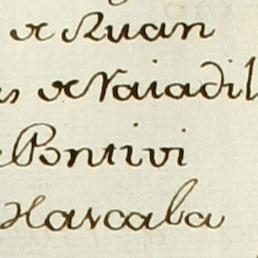 de Ruan
de Vaiadil
Pontivi
Harcaba